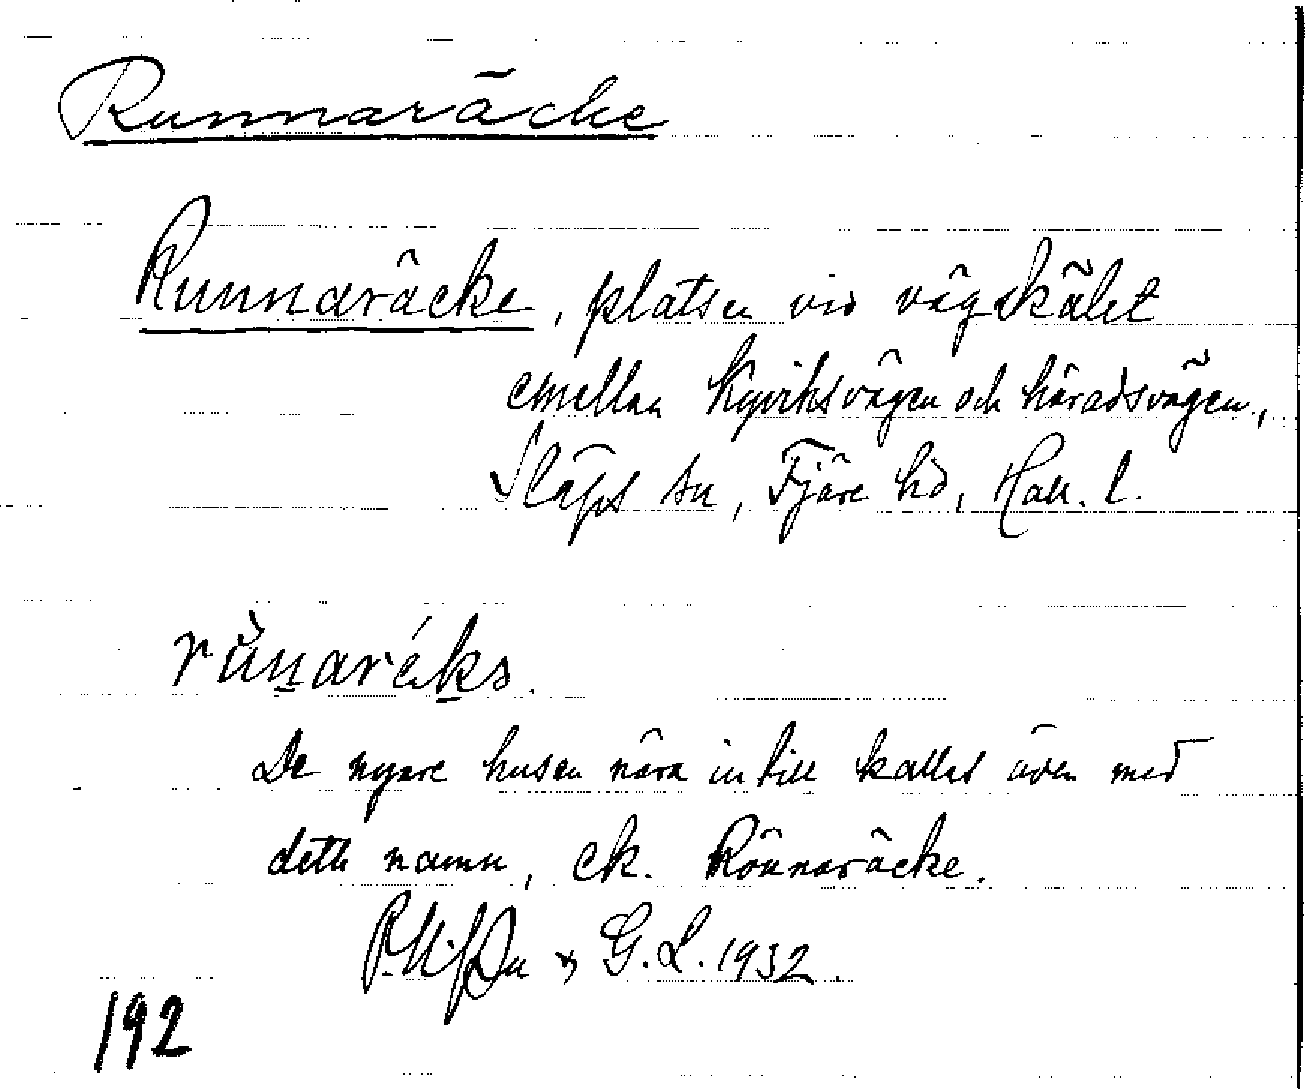 Runnaräcke
Runnaräcke, platsen vid vägskälet
emellan Kyviksvägen och häradsvägen,
Släps sn, Fjäre hd, Hall. l.
De nyare husen nära intill kallas även med
detta namn, ek. Rönnaräcke.
G.L. 1932.
192